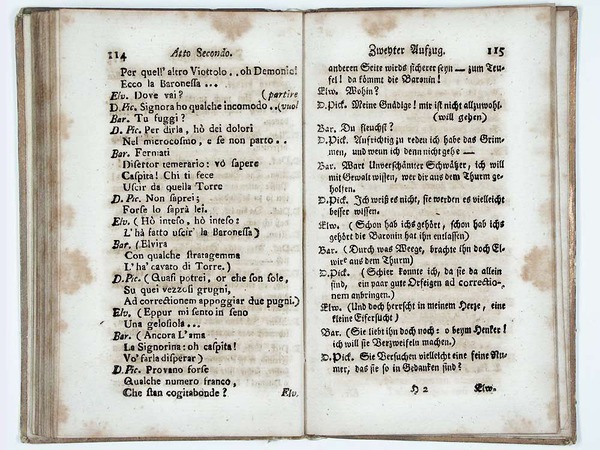 114 Atto Secondo.
Per quell' altro Viottolo.. oh Demonio!
Ecco la Baronessa ...
Elv. Dove vai? (partire
D. Pic. Signora ho qualche incomodo ..(vuol
Bar. Tu fuggi?
D. Pic. Per dirla, hò dei dolori
Nel microcosmo, e se non parto..
Bar. Fermati
Disertor temerario: vò sapere
Caspita! Chi ti fece
Uscir da quella Torre
D. Pic. Non saprei;
Forse lo saprà lei.
Elv. (Hò inteso, hò inteso:
L' hà fatto uscir la Baronessa)
Bar. (Elvira
Con qualche stratagemma
L' ha' cavato di Torre.)
D. Pic. (Quasi potrei, or che son sole,
Su quei vezzosi grugni,
Ad correctionem appoggiar due pugni.)
Elv. (Eppur mi sento in seno
Una gelosiola...
Bar. (Ancora L'ama
La Signorina: oh caspita!
Vo' farla disperar)
D. Pic. Provano forse
Qualche numero franco,
Che stan cogitabonde?
Elv.
Zweyter Aufzug. 115
anderen Seite wirds sicherer seyn — zum Teu-
fel! da kömmt die Baronin!
Elw. Wohin?
D. Pick. Meine Gnädige! mir ist nicht allzuwohl.
(will gehen)
Bar. Du fleuchst?
D. Pick. Aufrichtig zu reden ich habe das Grim-
men, und wenn ich denn nicht gehe —
Bar. Wart Unverschämter Schwätzer, ich will
mit Gewalt wissen, wer dir aus dem Thurm ge-
holfen.
D. Pick. Ich weiß es nicht, sie werden es vielleicht
besser wissen.
Elw. (Schon hab ichs gehört, schon hab ichs
gehört die Baronin hat ihn entlassen)
Bar. (Durch was Weege, brachte ihn doch El-
wire aus dem Thurm)
D. Pick. (Schier könnte ich, da sie da allein
sind, ein paar gute Orfeigen ad correctio-
nem anbringen.)
Elw. (Und doch herrscht in meinem Herze, eine
kleine Eifersucht)
Bar. (Sie liebt ihn doch noch: o beym Henker!
ich will sie Verzweifeln machen.)
D. Pick. Sie Versuchen vielleicht eine feine Nu-
mer, das sie so in Gedanken sind?
H 2 Elw.